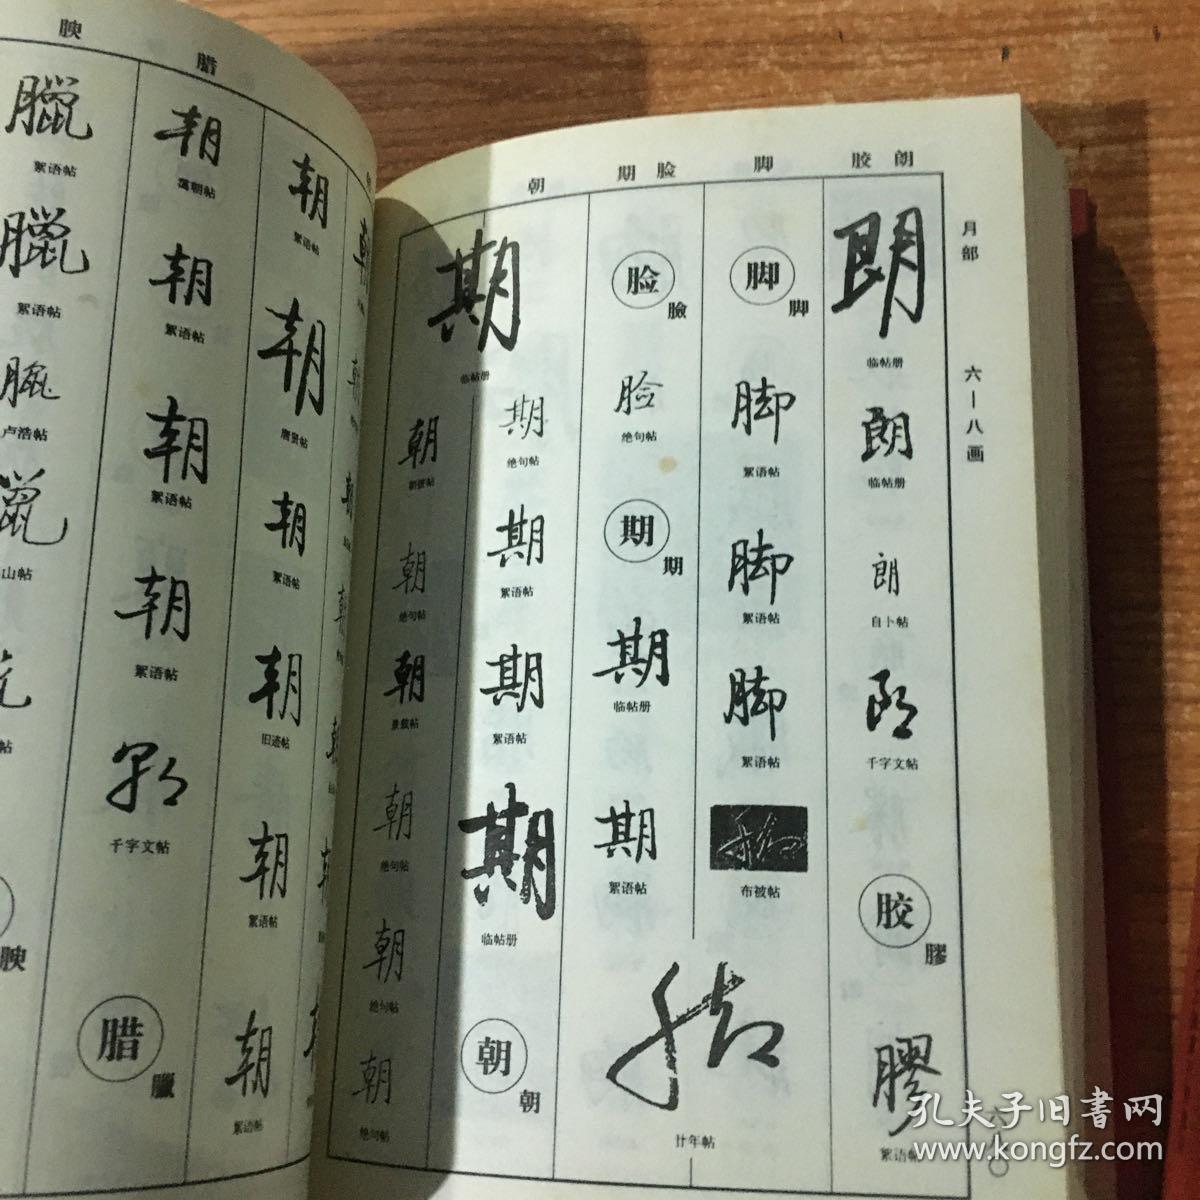 朗 胶 脚 脸 期 朝
月部 六—八画 六一〇
朗
临帖册
朗
临帖册
朗
自卜帖
朗
千字文帖
胶 膠
膠
絮语帖
脚 脚
脚
絮语帖
脚
絮语帖
脚
絮语帖
脚
布被帖
脚
廿年帖
脸 臉
脸
绝句帖
期 期
期
临帖册
期
絮语帖
期
临帖册
期
绝句帖
期
絮语帖
期
絮语帖
期
临帖册
朝 朝
朝
朝
绝句帖
朝
朝
绝句帖
朝
绝句帖
朝
绝句帖
腊
腴
朝
絮语帖
朝
唐贤帖
朝
絮语帖
朝
旧迹帖
朝
絮语帖
朝
絮语帖
朝
朝
絮语帖
朝
絮语帖
朝
絮语帖
朝
千字文帖
腊 臘
臘
絮语帖
臘
絮语帖
臘
卢浩帖
臘
山帖
帖
腴
孔夫子旧书网
www.kongfz.com